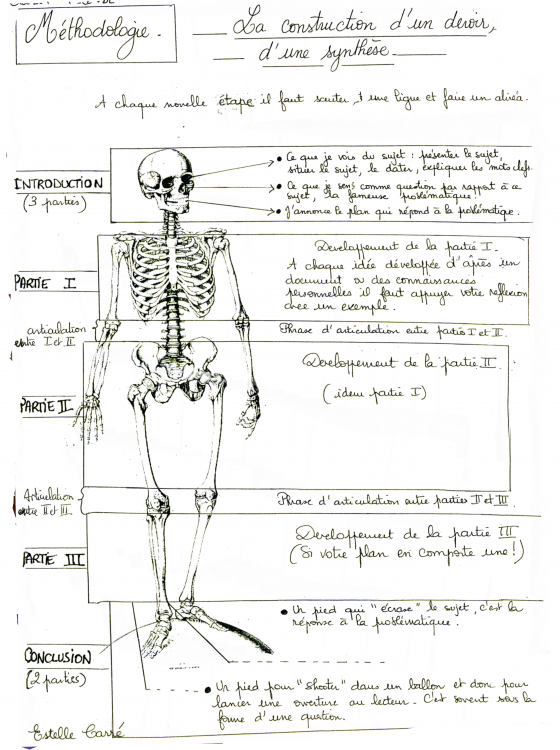 Méthodologie.
La construction d'un devoir,
d'une synthèse
A chaque nouvelle étape il faut sauter 1 une ligne et faire un alinéa.
INTRODUCTION
(3 parties)
• Ce que je vois du sujet : présenter le sujet,
situer le sujet, le dater, expliquer les mots clefs.
• Ce que je sens comme question par rapport à ce
sujet, la fameuse problématique !
• J'annonce le plan qui répond à la problématique.
PARTIE I
Developpement de la partie I.
A chaque idée développée d'après un
document ou des connaissances
personnelles il faut appuyer votre réflexion
avec un exemple.
articulation
entre I et II
Phrase d'articulation entre parties I et II.
PARTIE II
Developpement de la partie II.
(idem partie I)
Articulation
entre II et III
Phrase d'articulation entre parties II et III
PARTIE III
Developpement de la partie III
(Si votre plan en comporte une !)
• Un pied qui "écrase" le sujet, c'est la
réponse à la problématique.
CONCLUSION
(2 parties)
• Un pied pour "shooter" dans un ballon et donc pour
lancer une ouverture au lecteur. C'est souvent sous la
forme d'une question.
Estelle Carré